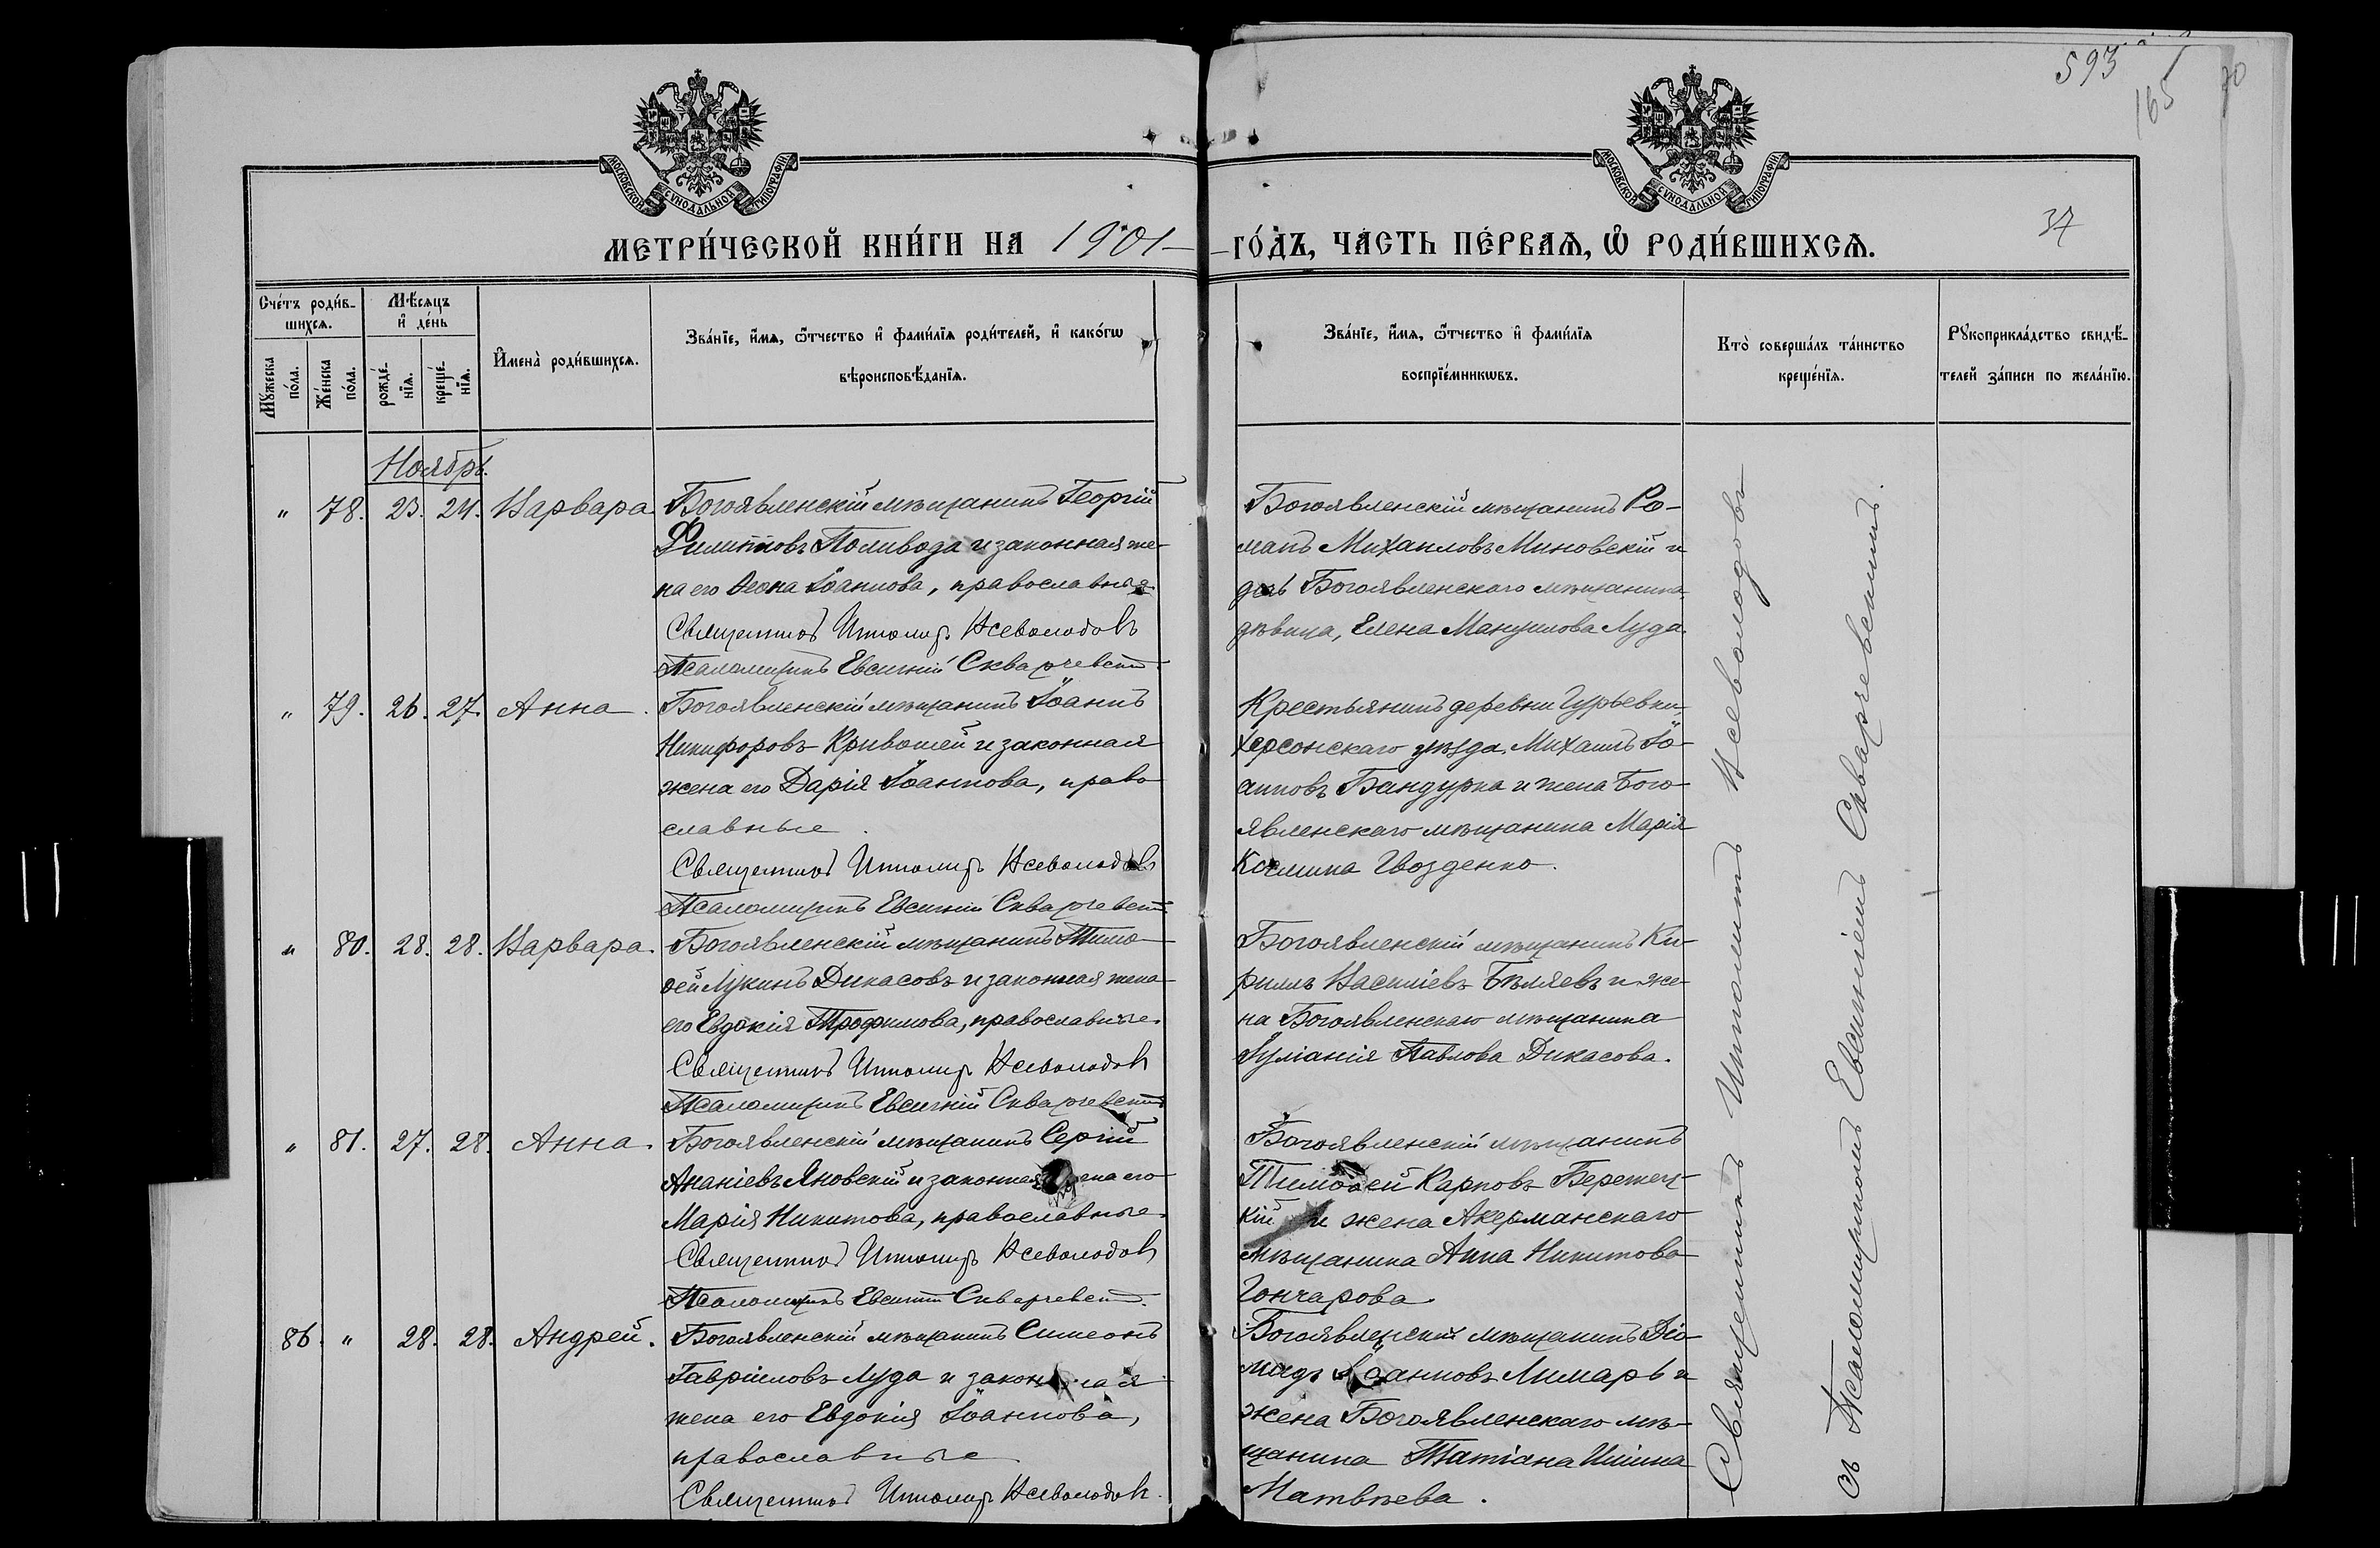 593
165
70
37
МОСКОВСКОЙ СѴНОДАЛЬНОЙ ТИПОГРАФІИ
МОСКОВСКОЙ СѴНОДАЛЬНОЙ ТИПОГРАФІИ
МЕТРИ́ЧЕСКОЙ КНИ́ГИ НА 1901 ГО́ДЪ, ЧА́СТЬ ПЕ́РВАѦ, Ѡ҆ РОДИ́ВШИХСѦ.
Сче́тъ роди́в-
шихсѧ.
Мꙋ́жеска по́ла.
Же́нска по́ла.
Мѣ́сѧцъ
и҆ де́нь
рожде́-
нїѧ.
креще́-
нїѧ.
И҆мена̀ роди́вшихсѧ.
Зва́нїе, и҆́мѧ, ѻ҆́тчество и҆ фами́лїѧ роди́телей, и҆ како́гѡ
вѣроисповѣ́данїѧ.
Зва́нїе, и҆́мѧ, ѻ҆́тчество и҆ фами́лїѧ
воспрїе́мникѡвъ.
Кто̀ соверша́лъ та́инство
креще́нїѧ.
Рꙋкоприкла́дство свидѣ́-
телей за́писи по жела́нїю.
Ноябрь.
" 78. 23. 24. Варвара. Богоявленскій мѣщанинъ Георгій
Филипповъ Поливода и законная же-
на его Ѳеона Іоаннова, православные
Священникъ Всеволодовъ
Псаломщикъ Евсигній Скваржевскій
Богоявленскій мѣщанинъ Ро-
манъ Михаиловъ Миновскій и
дочь Богоявленскаго мѣщанина
дѣвица, Елена Мануилова Луда.
" 79. 26. 27. Анна. Богоявленскій мѣщанинъ Іоаннъ
Никифоровъ Кривошей и законная
жена его Дарія Іоаннова, право
славные.
Священникъ Всеволодовъ
Псаломщикъ Евсигній Скваржевскій
Крестьянинъ деревни Гурьевки
Херсонскаго уѣзда, Михаилъ Іо-
анновъ Бандурка и жена Бого-
явленскаго мѣщанина Марія
Космина Гвозденко.
" 80. 28. 28. Варвара. Богоявленскій мѣщанинъ Тимо-
ѳей Лукинъ Дикасовъ и законная жена
его Евдокія Трофимова, православные.
Священникъ Всеволодовъ
Псаломщикъ Евсигній Скваржевскій
Богоявленскій мѣщанинъ Ки-
риллъ Василіевъ Бѣляевъ и же-
на Богоявленскаго мѣщанина
Іуліанія Павлова Дикасова.
" 81. 27. 28. Анна. Богоявленскій мѣщанинъ Сергій
Ананіевъ Яновскій и законная жена его
Марія Никитова, православные.
Священникъ Всеволодовъ
Псаломщикъ Евсигній Скваржевскій.
Богоявленскій мѣщанинъ
Тимоѳей Карповъ Бережец-
кій и жена Акерманскаго
мѣщанина Анна Никитова
Гончарова
86. " 28. 28. Андрей. Богоявленскій мѣщанинъ Симеонъ
Гавріиловъ Луда и законная
жена его Евдокія Іоаннова,
православные
Священникъ Всеволодовъ.
Богоявленскій мѣщанинъ Діо-
мидъ Іоанновъ Лимарь и
жена Богоявленскаго мѣ-
щанина Татіана Иліина
Матвѣева.
Священникъ Всеволодовъ
съ Псаломщикомъ Евсигніемъ Скваржевскимъ.